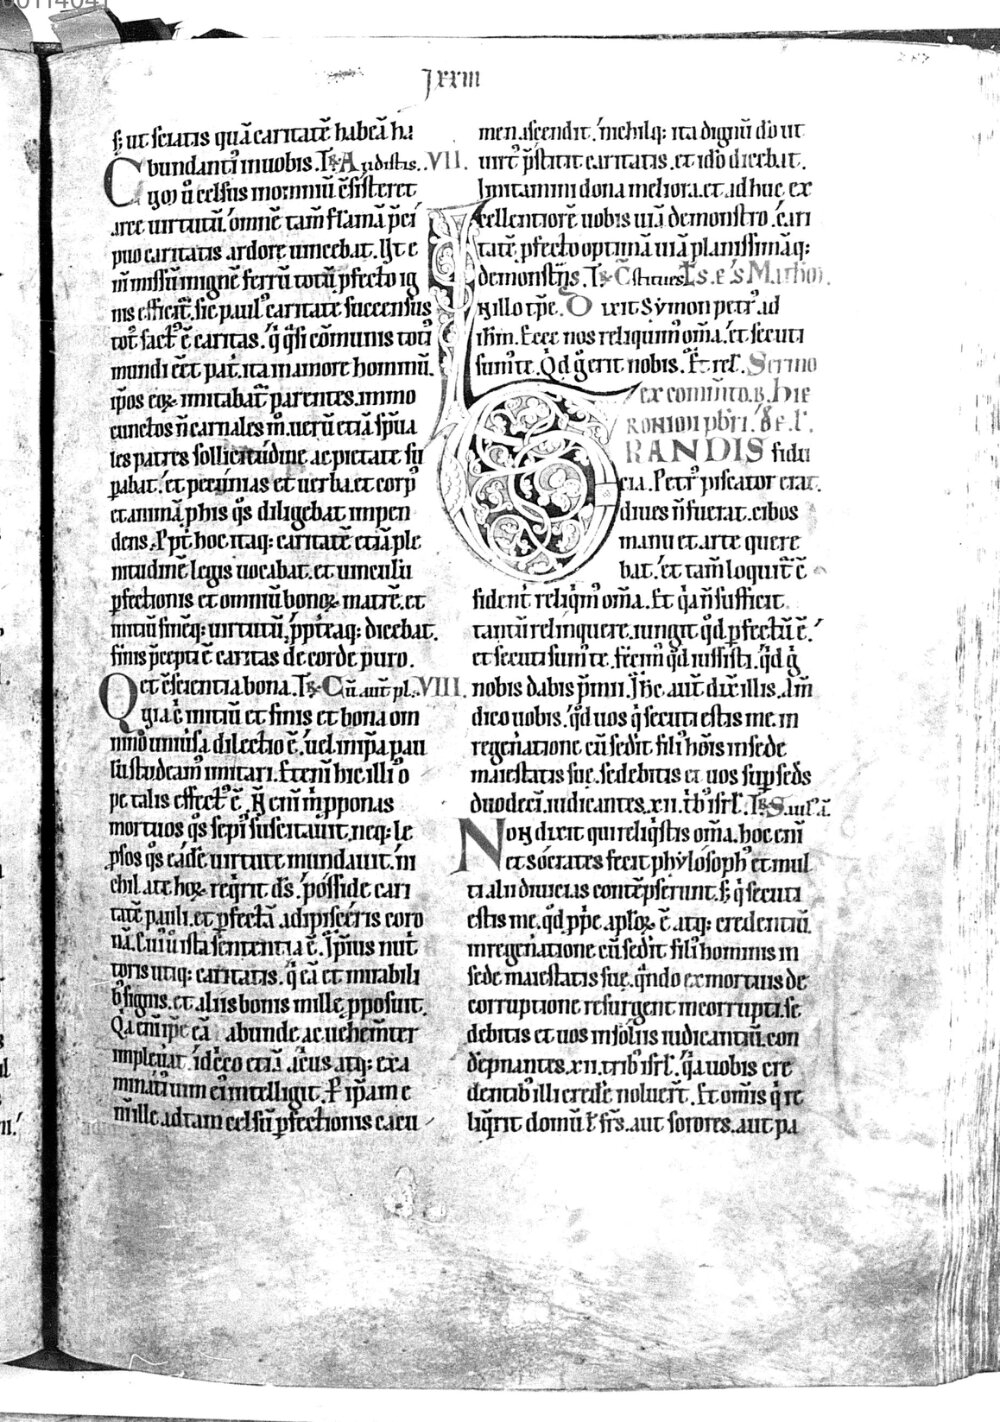 lxxiii
s; ut sciatis quā caritatē habeā ha
bundanti᷒ in uobis. R̷ Audistis. VII.
Cum u᷒o celsus in om̄iū c̄sisteret
arce uirtutū. omnē tam̄ flāmā p̄ci
puo caritatis ardore uincebat. Vt e
n̄ missū in igne ferrū totū p̄fecto ig
nis efficit᷒. sic paul᷒ caritate succensus
tot᷒ fact᷒ ē caritas. q͛ q͛si cōmunis toti᷒
mundi cēt pat᷒. ita in amore hominū.
ip̄os eoꝝ imitabat᷒ parentes. immo
cunctos n̄ carnales m̊. uerū etiā sp̄ua
les patres sollicitudine ac pietate su
ꝑabat. et pecunias et uerba. et corp᷒
et animā p̱ his q͛s diligebat inpen
dens. Ppt̄ hoc itaq: caritatē etiā ple
nitudinē legis uocabat. et uinculū
ꝑfectionis et omniū bonoꝝ matrē. et
initiū finēq: uirtutū. p̱pt̄eaq: dicebat.
finis p̄cepti ē caritas de corde puro.
Et c̄scientia bona. R̷ Cū aut̄ pl. VIII.
Quia ḡ initiū et finis et bona om
nino uniuersa dilectio ē. uel in ip̄a pau
lū studeam᷒ imitari. Etenī hic illi᷒ o
pe talis effect᷒ ē. N̄ enī m̊ p̱ponas
mortuos q͛s sepi᷒ suscitauit. neq: le
p̱sos q͛s eādē uirtute mundauit. ni
chil a te hoꝝ req͛rit ds̄. posside cari
tatē pauli. et p̱fectā adipisceris coro
nā. Cui᷒ ista sententia ē. Ip̄ius nut͛
toris utiq: caritatis. q͛ eā et mirabili
b᷒ signis. et aliis bonis mille p̱posuit.
Q͛a enī ip̄e eā abunde ac uehem̄ter
impleuat. idcirco etiā ac᷒ius atq: exa
minati᷒ uim ei᷒ intelligit. S; ip̄am e
n̄ ille ad tam celsū p̱fectionis cacu
men ascendit. nichilq: ita dignū do ut
uirt᷒ p̄stitit caritatis. et ido dicebat.
Imitamini dona meliora. et adhuc ex
cellentiorē uobis uiā demonstro. cari
tatē. p̱fecto optimā uiā planissimāq:
demonstr̄s. R̷ C̄stitues
In illo tp̄e. Dixit Symon petr᷒ ad
ih̄m. Ecce nos reliquim᷒ om̄a. et secuti
sum᷒ te. Q͛d ḡ erit nobis. Et rel̄. Sermo
ex com̄to. b. hie
ronimi p̱bri. de e.
GRANDIS fidu
cia. Petr᷒ piscator erat.
diues n̄ fuerat. cibos
manu et arte quere
bat. et tam̄ loquit᷒ c̄
fident᷒. reliq͛m᷒ om̄a. Et q͛a n̄ sufficit
tantū relinquere. iungit q͛d ꝑfectū ē.
et secuti sum᷒ te. fecim᷒ q͛d iussisti. q͛d ḡ
nobis dabis p̄mii. Ih̄c aut̄ dix̄ illis. Am̄
dico uobis. q͛d uos q͛ secuti estis me. in
regen̄atione cū sed̄it fili᷒ hōis in sede
maiestatis suę. sedebitis et uos suꝑ seds
duodeci. iudicantes. xii. t͛b᷒ isrl̄. R̷ Saul᷒
Non dixit qui reliq͛stis om̄a. hoc enī
et socrates fecit phylosoph᷒ et mul
ti alii diuicias contēpserunt. s; q͛ secuti
estis me. q͛d p̱p̄e. ap̄loꝝ ē. atq: credentiū.
in regen̄atione cū sed̄it fili᷒ hominis in
sede maiestatis suę. q͛ndo ex mortuis de
corruptione resurgent incorrupti. se
debitis et uos in soliis iudicantiū. con
dēpnantes. xii. trib᷒ isrl̄. q͛a uobis cre
dentib᷒ illi cred̄e noluer̄t. Et om̄is q͛ re
liq͛rit domū ł frs̄. aut sorores. aut pa